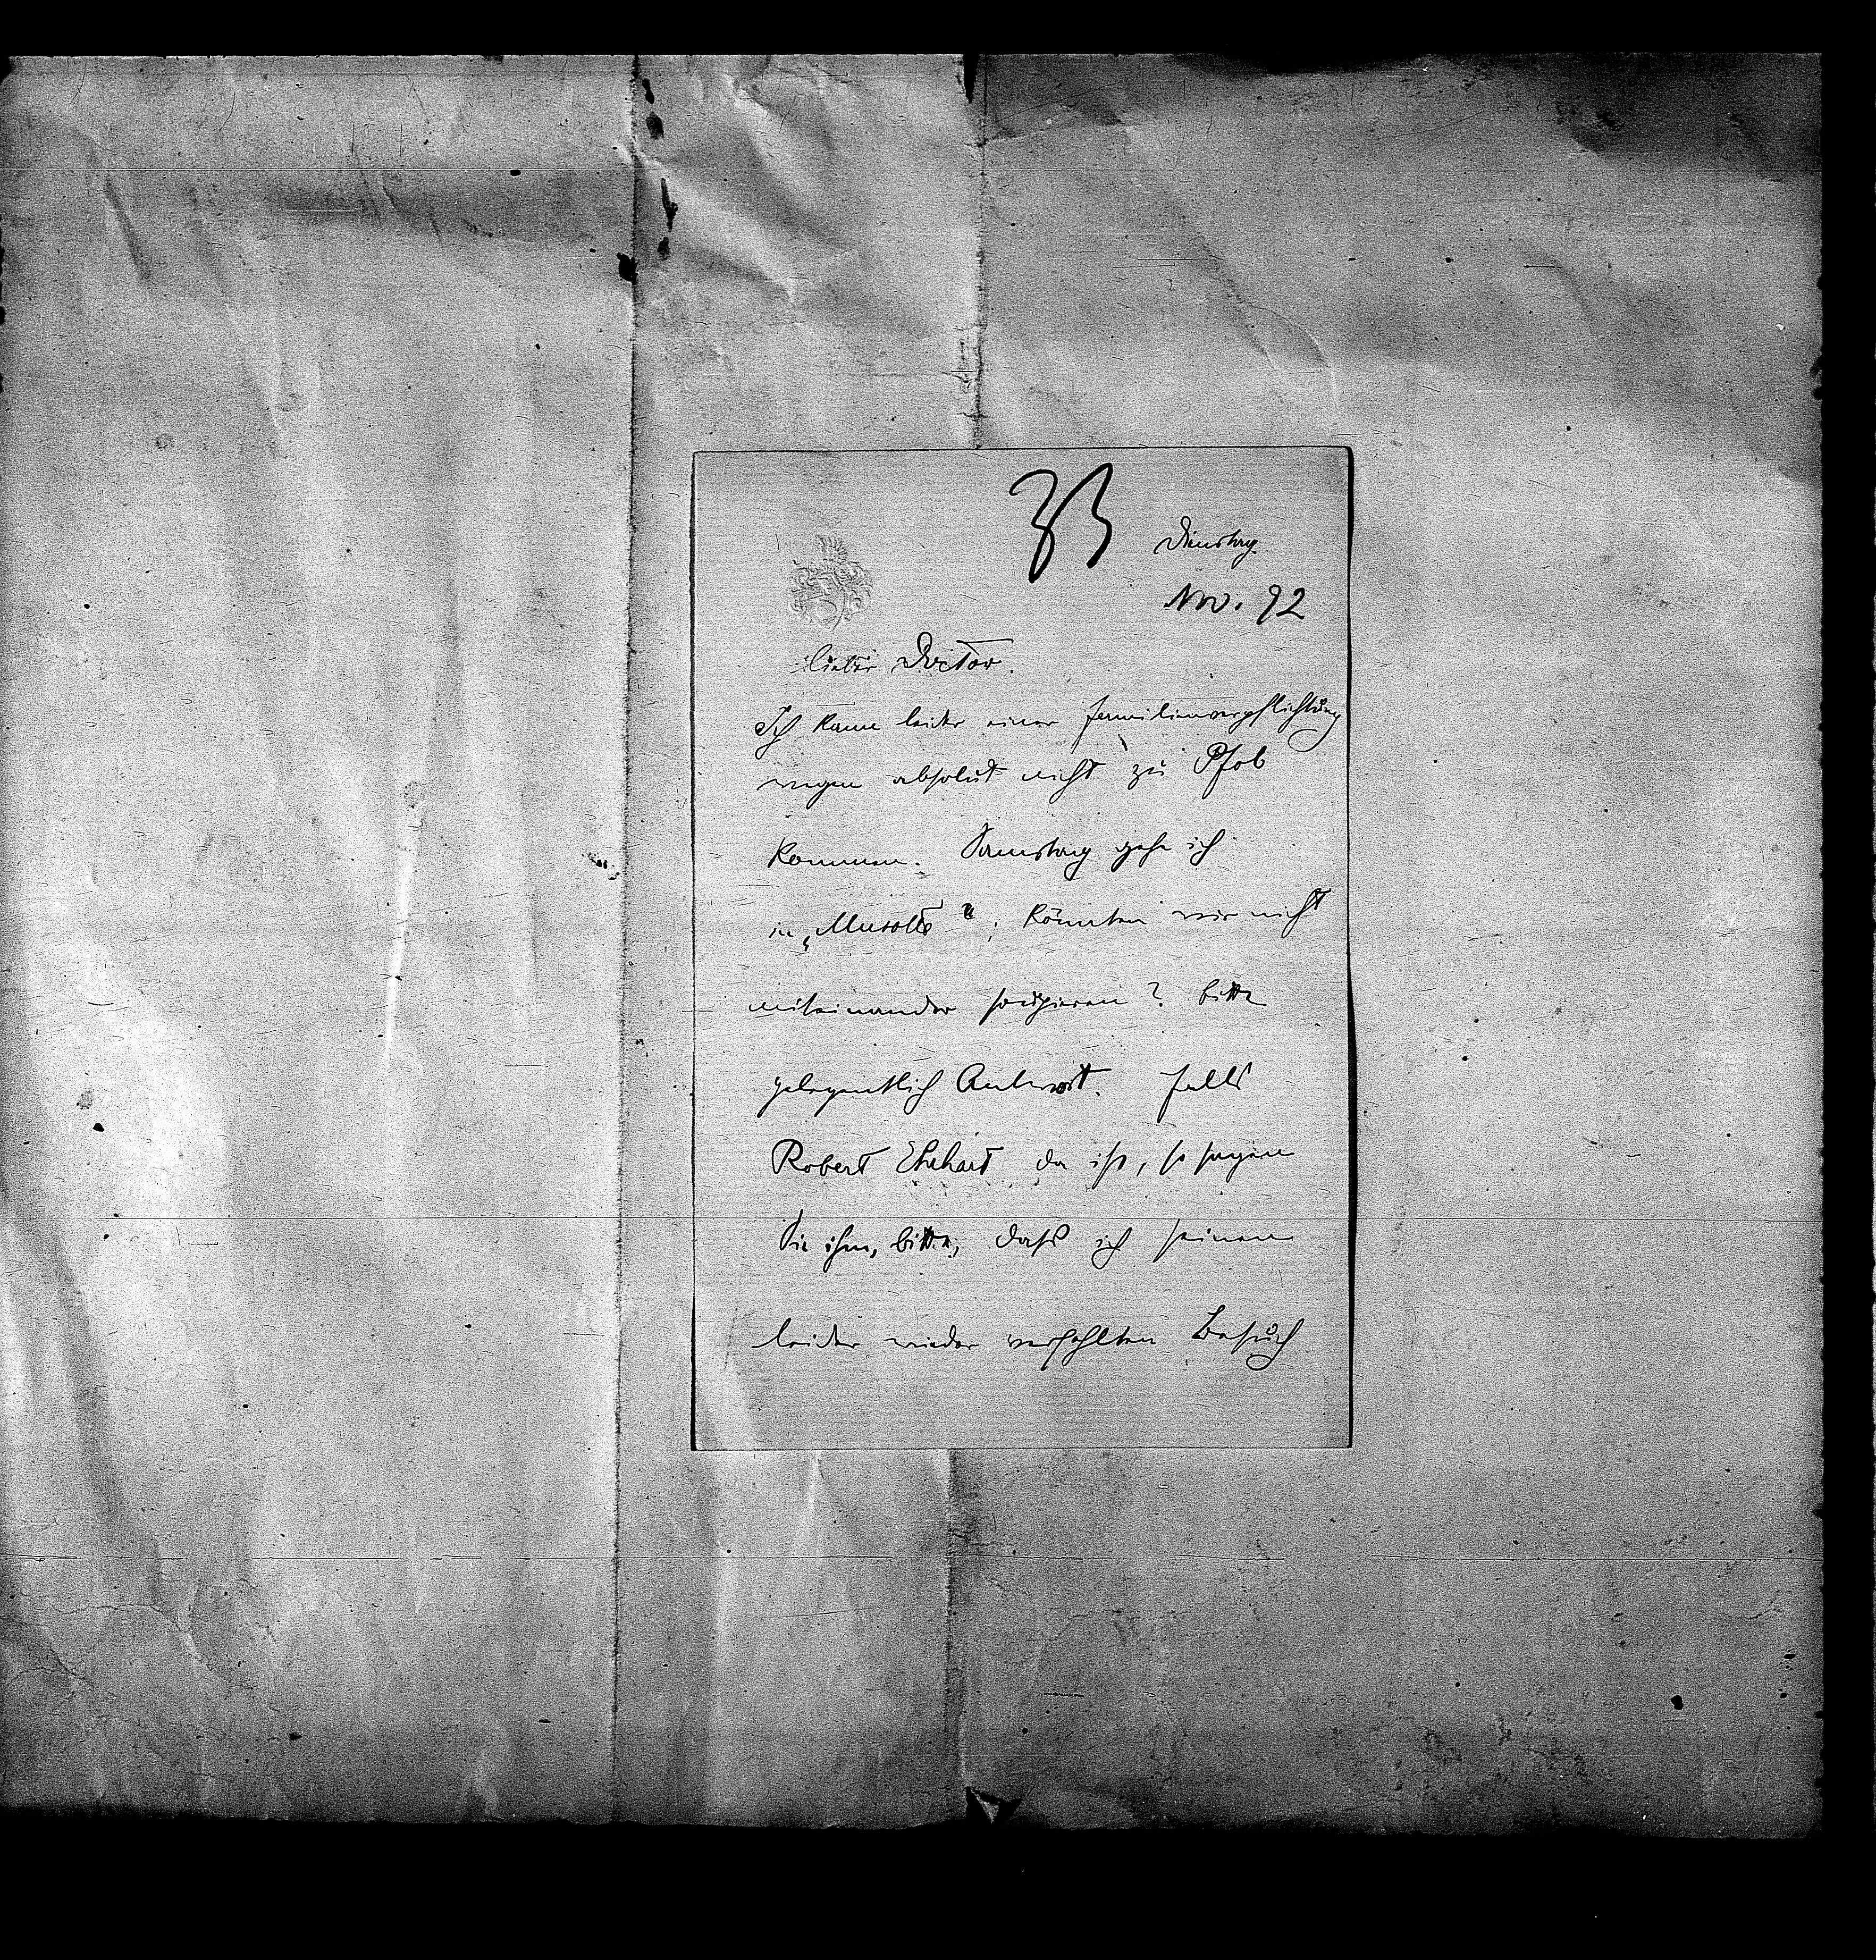 33
Dienstag
Nov. 92
Lieber Doctor.
Ich kann leider einer Familienverpflichtung
wegen absolut nicht zu Pfob
kommen. Samstag gehe ich
in „Musotte“; könnten wir nicht
miteinander soupieren? bitte
gelegentlich Antwort. Falls
Robert Ehrhart da ist, so sagen
Sie ihm, bitte, dass ich seinen
leider wieder verfehlten Besuch